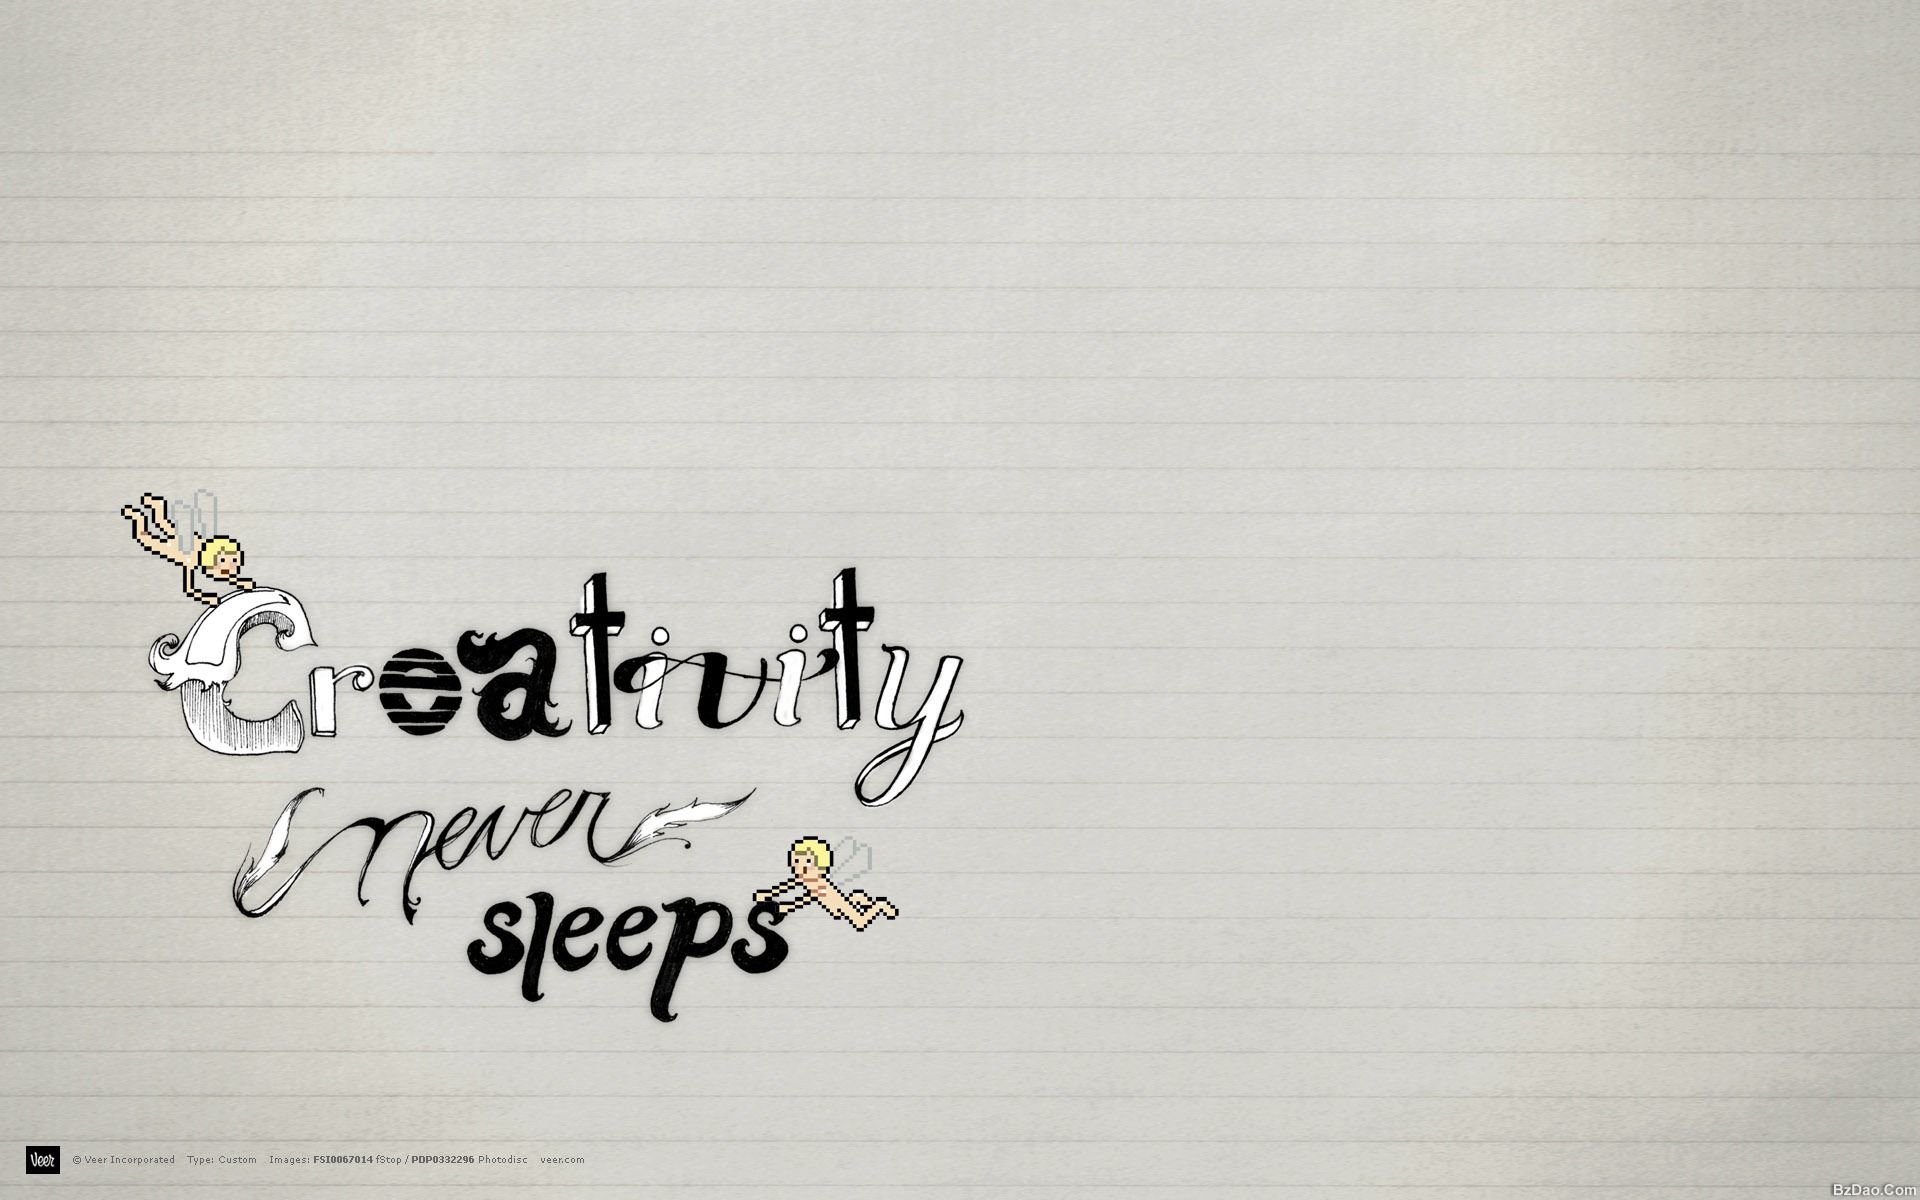 Creativity
never
sleeps
Veer © Veer Incorporated Type: Custom Images: FSI0067014 fStop / PDP0332296 Photodisc veer.com
BzDao.Com